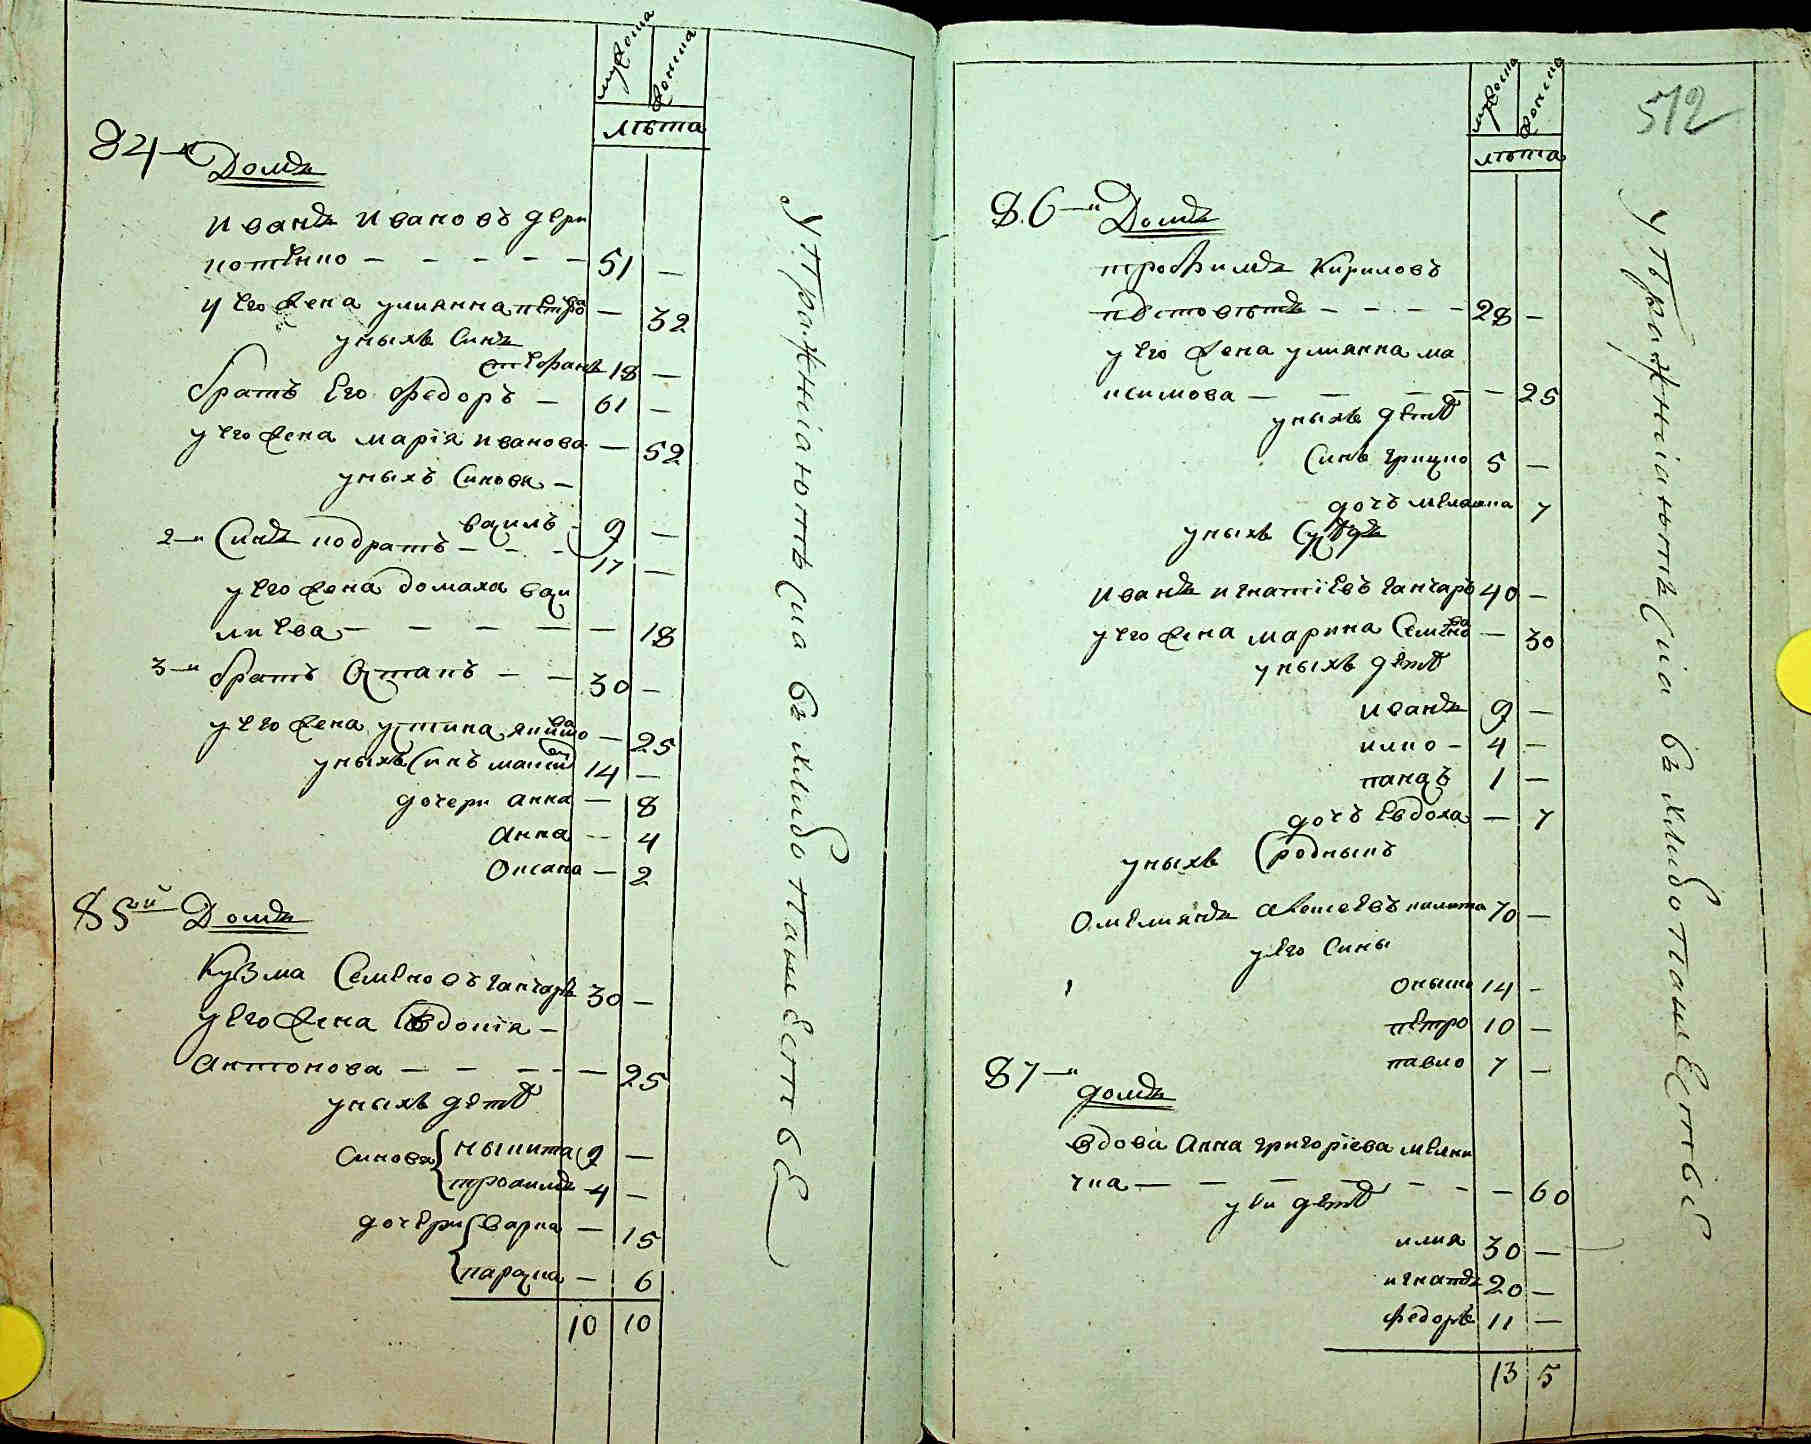 мужеска
женска
лѣта
84-й Домъ
Иванъ Ивановъ дери
потенко - - - - - 51 -
у его жена улиянна петрова - 32
у ныхъ Синъ
стефанъ 18 -
братъ Его Федоръ - 61 -
у его жена мария иванова - 52
у ныхъ Синовя -
василъ - 9 -
2-й Синъ кодратъ - - - 17 -
у его жена домаха васи
лиева - - - - - 18
3-й братъ Остапъ - - 30 -
у его жена устина якимова - 25
у ныхъ Синъ матвей 14 -
дочери анна - 8
Анна - 4
Оксана - 2
85-ий Домъ
Кузма Семеновъ ганчаръ 30 -
у его жена Евдокия -
антонова - - - - - 25
у ныхъ дети
Синовя ныкита 9 -
трохимъ 4 -
дочери варка - 15
параска - 6
10 10
Упражниаютъсиа въ хлибопашествѣ
572
мужеска
женска
лѣта
86-й Домъ
трофимъ Кириловъ
- - - - 28 -
у его жена улиянна ма
ксимова - - - - - 25
у ныхъ дети
Синъ грицко 5 -
дочъ меланка 7
у ныхъ Сусѣдъ
Иванъ игнатиевъ ганчаръ 40 -
у его жена марина Семенова - 30
у ныхъ дети
иванъ 9 -
илко - 4 -
панасъ 1 -
дочъ Евдоха - 7
у ныхъ Сродныкъ
Омелиянъ Алексеевъ 70 -
у Его Сины
Оныско 14 -
петро 10 -
павло 7 -
87-й
домъ
вдова Анна григориева мелни
чка - - - - - - 60
у еи дети
илия 30 -
игнатъ 20 -
федоръ 11 -
13 5
Упражниаютъсиа въ хлибопашествѣ